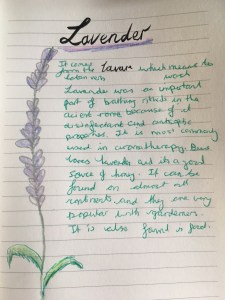 Lavender
It comes
from the lavare which means to
latin verb wash
Lavender was an important
part of bathing rituals in the
ancient rome because of it
disinfectant and antiseptic
properties. It is most commonly
used in aromatherapy. Bees
loves lavender and its a good
source of honey. It can be
found on almost all
continents and they are very
popular with gardeners.
It is also found in food.